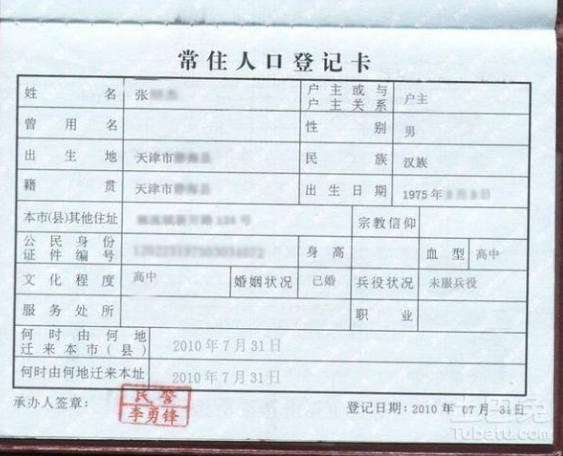 常住人口登记卡
姓名 张 户主或与户主关系 户主
曾用名 性别 男
出生地 天津市 民族 汉族
籍贯 天津市 出生日期 1975年
本市(县)其他住址 宗教信仰
公民身份证件编号 身高 血型 高中
文化程度 高中 婚姻状况 已婚 兵役状况 未服兵役
服务处所 职业
何时由何地迁来本市(县) 2010年7月31日
何时由何地迁来本址 2010年7月31日
承办人签章: 民警 李勇锋 登记日期:2010年07月31日
Tubatu.com